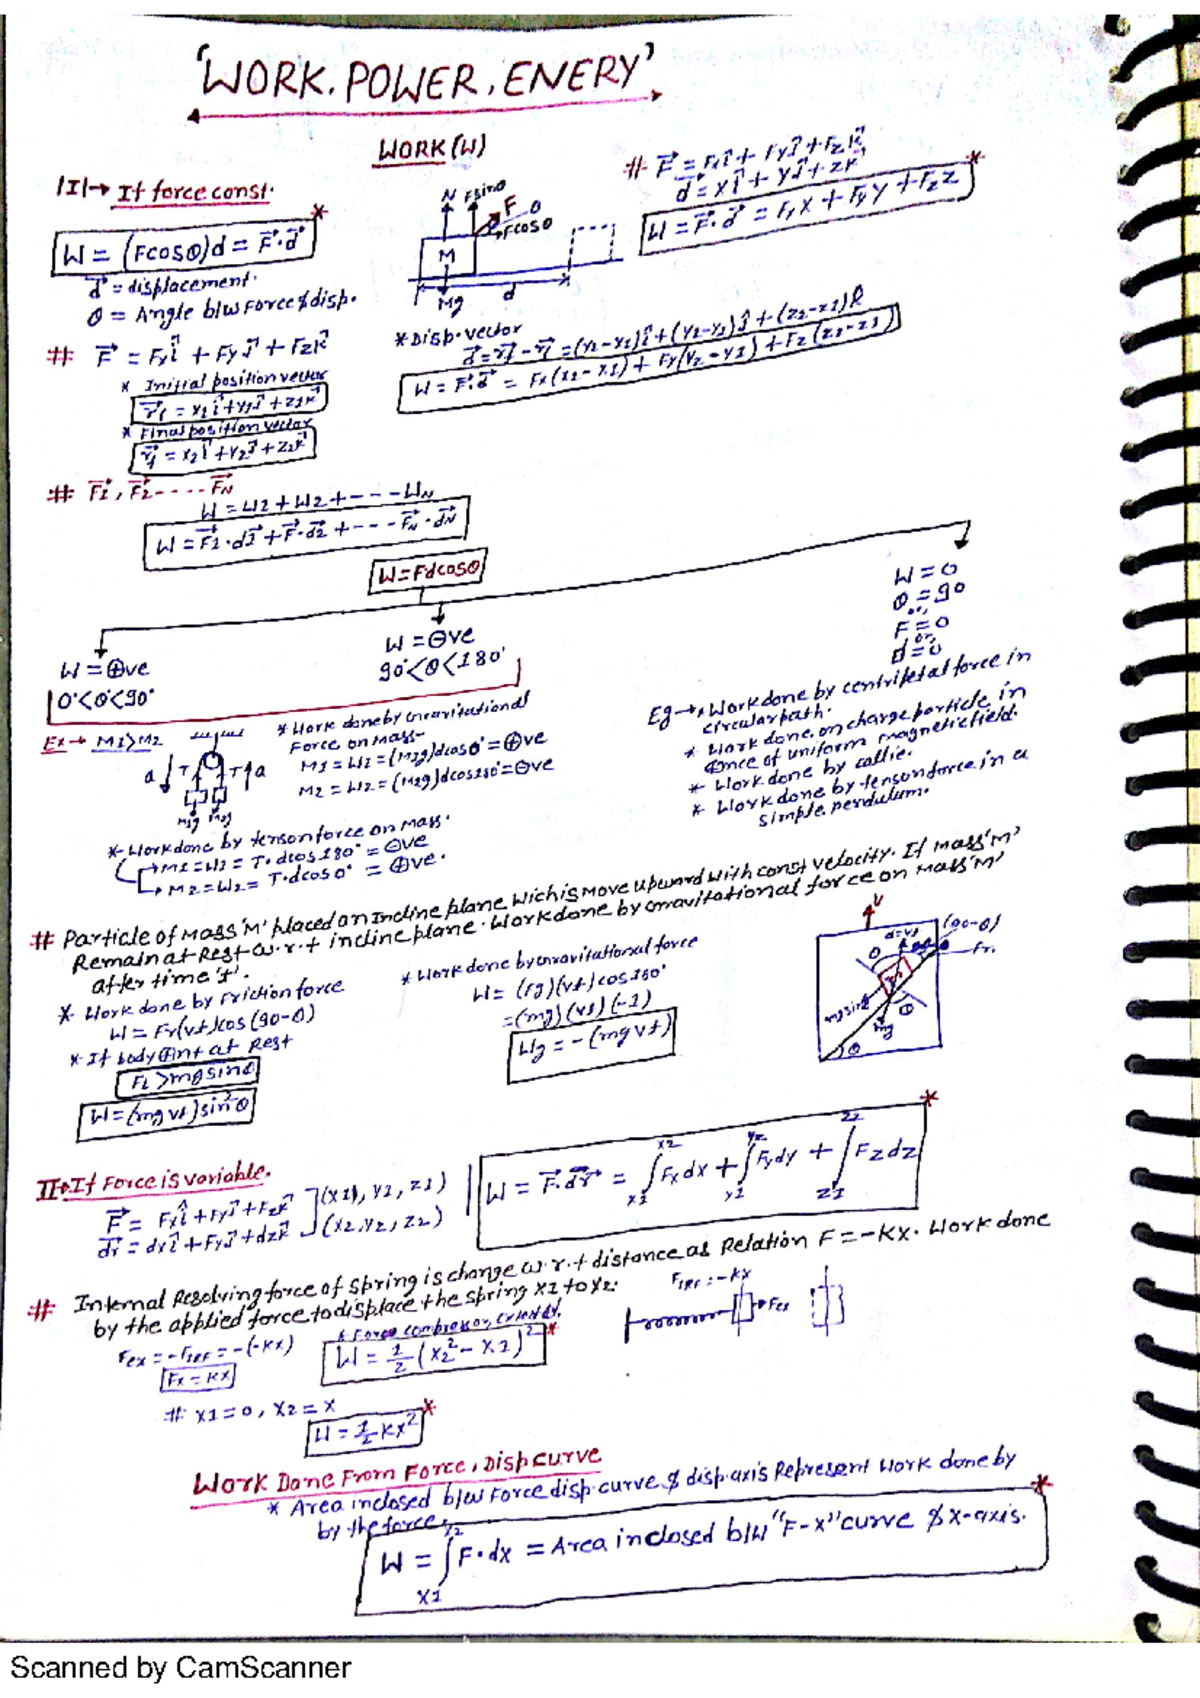 'WORK, POWER, ENERY'
WORK (W)
|I|→ If force const.
W = (Fcosθ)d = F⃗·d⃗
d⃗ = displacement.
θ = Angle b/w Force & disp.
N Fsinθ
F θ
Fcosθ
M
Mg
d
# F⃗ = Fxî + Fyĵ + Fzk̂
d⃗ = xî + yĵ + zk̂
W = F⃗·d⃗ = Fxx + Fyy + Fzz
# F⃗ = Fxî + Fyĵ + Fzk̂
* Initial position vector
r⃗i = x1î + y1ĵ + z1k̂
* Final position vector
r⃗f = x2î + y2ĵ + z2k̂
* Disp. vector
d⃗ = r⃗f - r⃗i = (x2-x1)î + (y2-y1)ĵ + (z2-z1)k̂
W = F⃗·d⃗ = Fx(x2-x1) + Fy(y2-y1) + Fz(z2-z1)
# F⃗1, F⃗2 ---- F⃗N
W = W1 + W2 + --- WN
W = F⃗1·d⃗1 + F⃗·d⃗2 + --- F⃗N·d⃗N
W = Fdcosθ
W = ⊕ve
0°<θ<90°
W = ⊖ve
90°<θ<180°
W = 0
θ = 90
or,
F = 0
or,
d = 0
Ex→ M1>M2
a T T a
M1g M2g
* Work done by Gravitational
Force on mass-
M1 = W1 = (M1g)dcos0° = ⊕ve
M2 = W2 = (M2g)dcos180° = ⊖ve
* Work done by tension force on mass.
→M1 = W1 = T·dcos180° = ⊖ve
→M2 = W2 = T·dcos0° = ⊕ve.
Eg→* Work done by centripetal force in
circular path.
* Work done on charge particle in
of uniform magnetic field.
* Work done by
* Work done by tenson force in a
simple pendulum.
# Particle of mass 'M' placed on Incline plane Wich is move upward with const velocity. If mass 'M'
Remain at Rest w.r.t incline plane. Work done by Gravitational force on mass 'M'
after time 't'.
* Work done by Friction force
W = Fr(vt)cos(90-θ)
* If body at Rest
mgsinθ
W = (mgvt)sin²θ
* Work done by Gravitational force
W = (vt)cos180°
= (mg)(vt)(-1)
Wg = -(mgvt)
v
d=vt
(90-θ)
θ
Fr.
mgsinθ
mg
θ
θ
II→If Force is variable.
F⃗ = Fxî + Fyĵ + Fzk̂ ](x1, y1, z1)
dr⃗ = dxî + Fyĵ + dzk̂ ](x2, y2, z2)
W = F⃗·dr⃗ = ∫x1x2 Fxdx + ∫y1y2 Fydy + ∫z1z2 Fzdz
# Internal Resolving force of spring is change w.r.t distance as Relation F = -Kx. Work done
by the applied force to displace the spring x1 to x2.
Fex = - = -(-Kx)
Fx = Kx
W = 1/2 (x2² - x1)²
= -Kx
Fex
# x1 = 0, x2 = x
W = 1/2 Kx²
Work Done From Force, Disp curve
* Area inclosed b/w Force disp. curve & disp. axis Represent Work done by
by the force.
W = ∫x1x2 F·dx = Area inclosed b/w "F-x" curve & x-axis.
Scanned by CamScanner